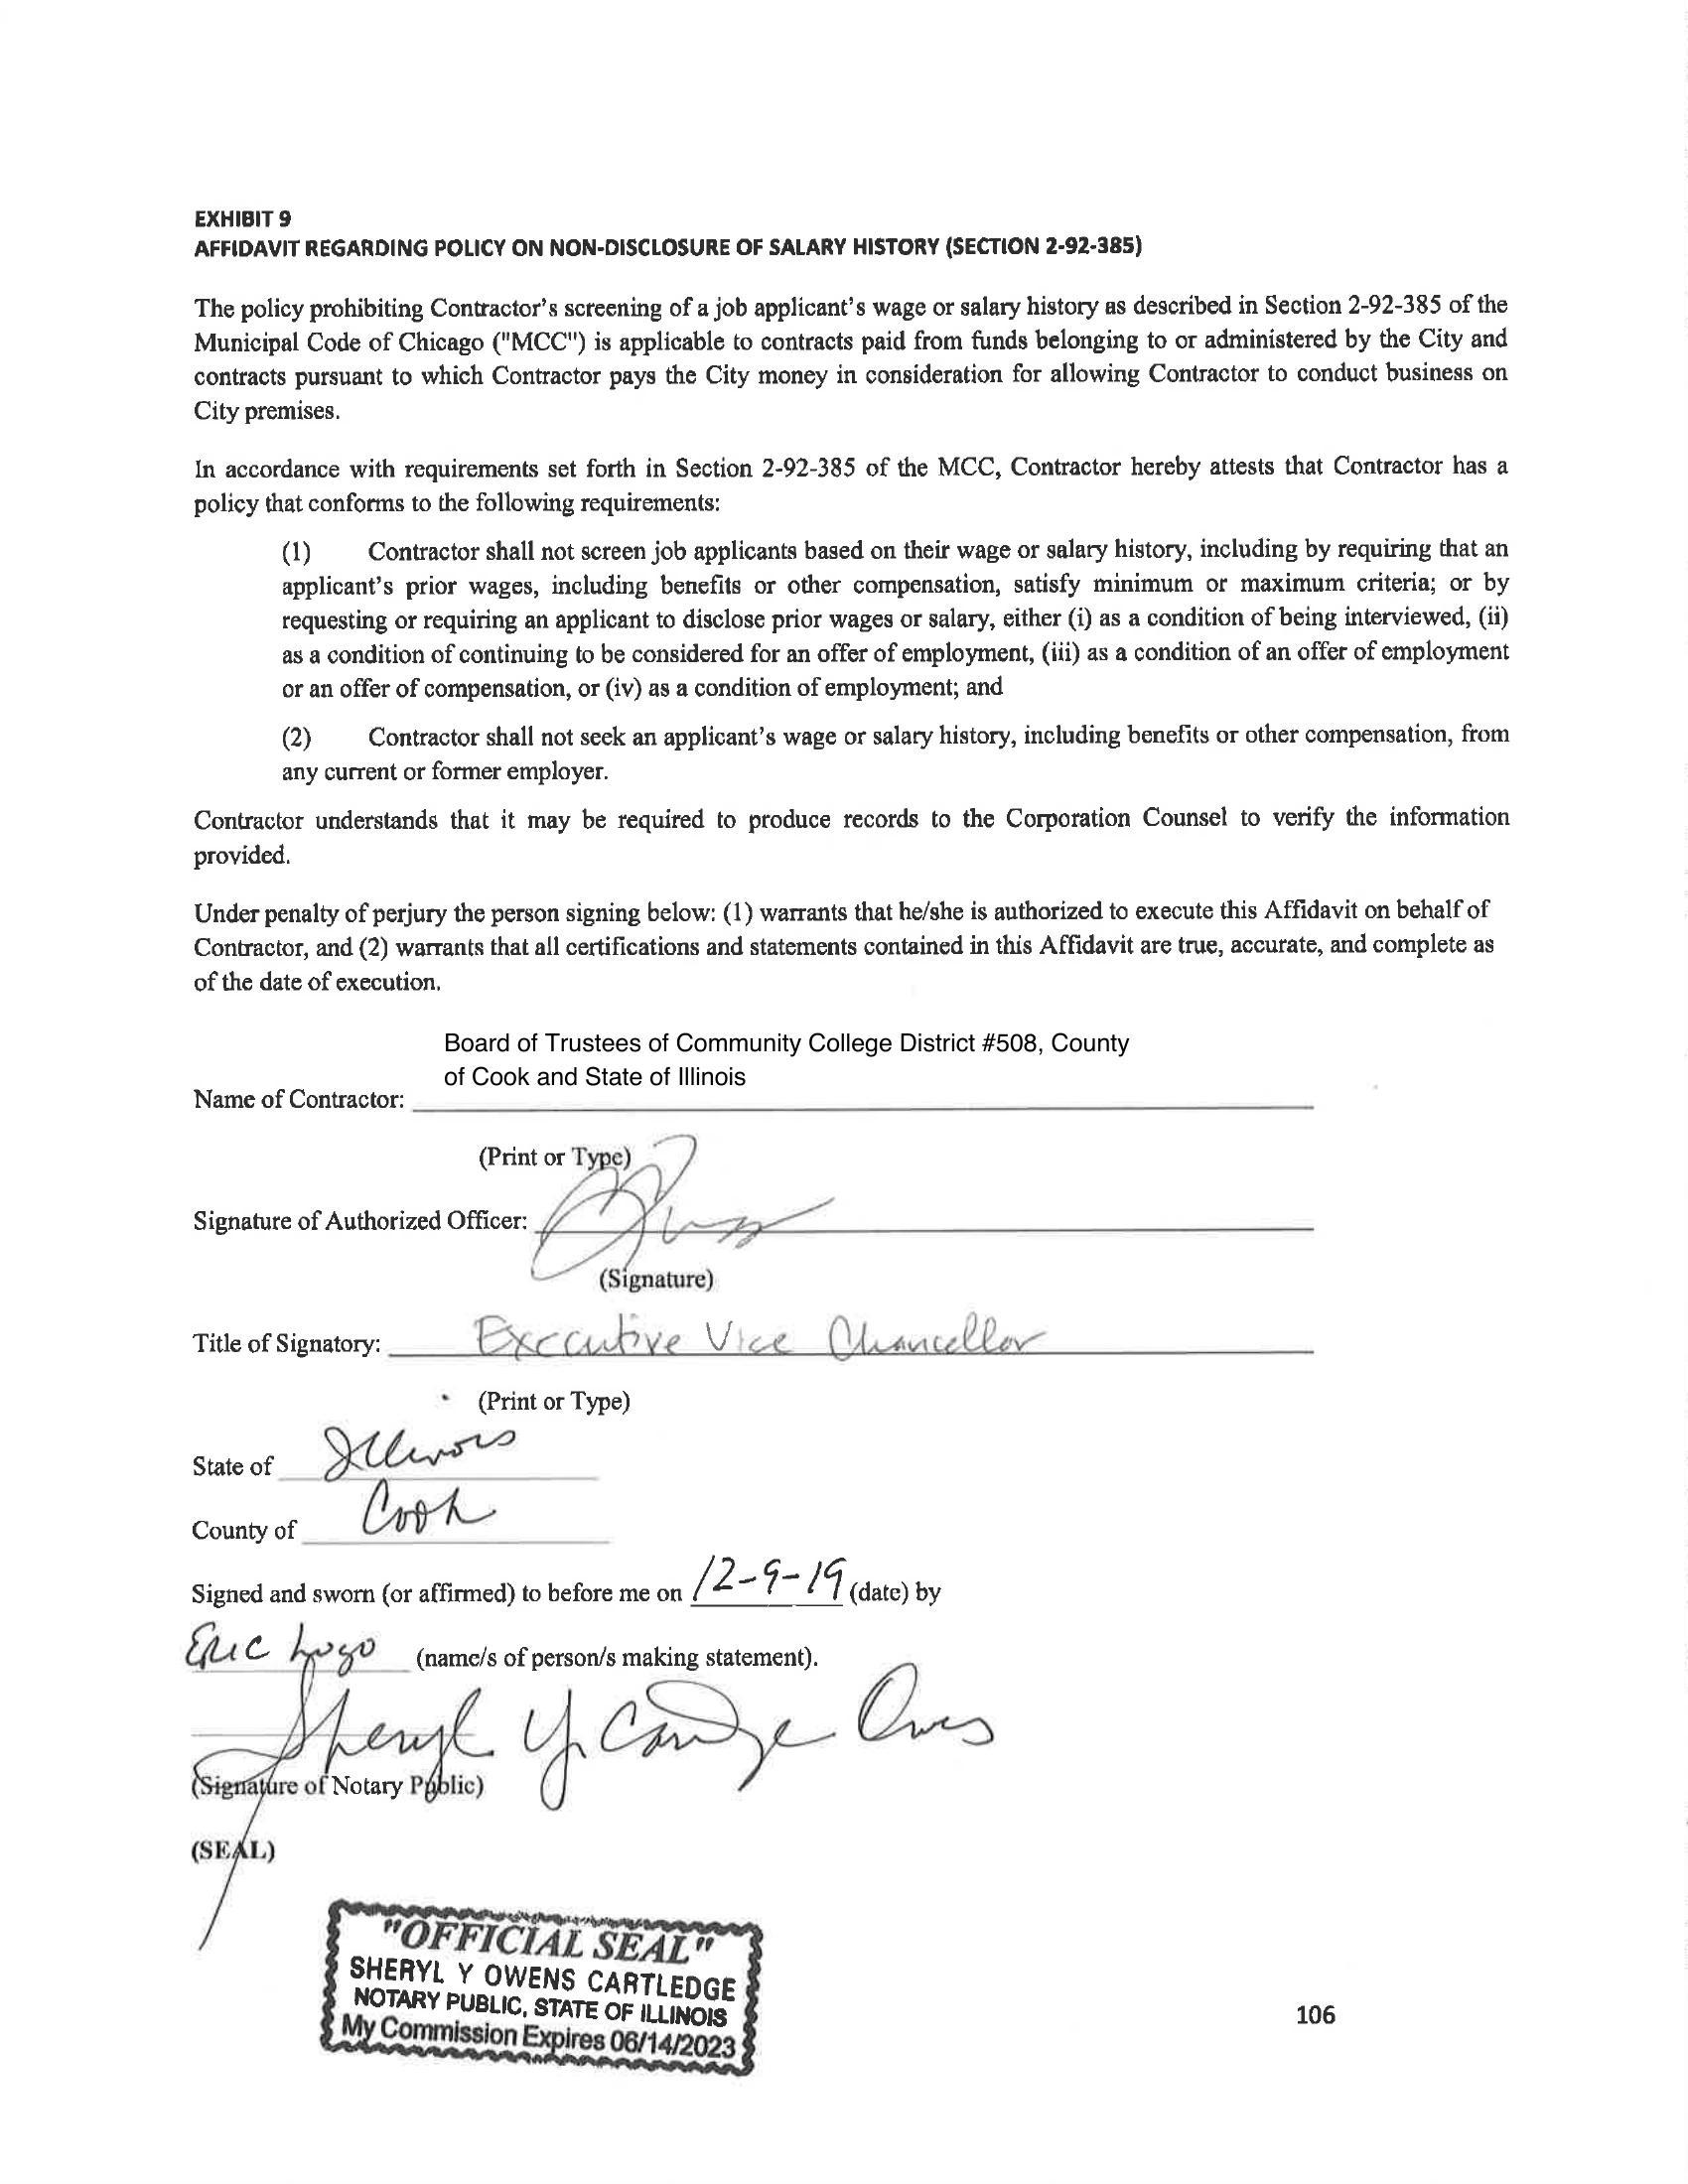 EXHIBIT 9
AFFIDAVIT REGARDING POLICY ON NON-DISCLOSURE OF SALARY HISTORY (SECTION 2-92-385)
The policy prohibiting Contractor's screening of a job applicant's wage or salary history as described in Section 2-92-385 of the
Municipal Code of Chicago ("MCC") is applicable to contracts paid from funds belonging to or administered by the City and
contracts pursuant to which Contractor pays the City money in consideration for allowing Contractor to conduct business on
City premises.
In accordance with requirements set forth in Section 2-92-385 of the MCC, Contractor hereby attests that Contractor has a
policy that conforms to the following requirements:
(1) Contractor shall not screen job applicants based on their wage or salary history, including by requiring that an
applicant's prior wages, including benefits or other compensation, satisfy minimum or maximum criteria; or by
requesting or requiring an applicant to disclose prior wages or salary, either (i) as a condition of being interviewed, (ii)
as a condition of continuing to be considered for an offer of employment, (iii) as a condition of an offer of employment
or an offer of compensation, or (iv) as a condition of employment; and
(2) Contractor shall not seek an applicant's wage or salary history, including benefits or other compensation, from
any current or former employer.
Contractor understands that it may be required to produce records to the Corporation Counsel to verify the information
provided.
Under penalty of perjury the person signing below: (1) warrants that he/she is authorized to execute this Affidavit on behalf of
Contractor, and (2) warrants that all certifications and statements contained in this Affidavit are true, accurate, and complete as
of the date of execution.
Board of Trustees of Community College District #508, County
of Cook and State of Illinois
Name of Contractor:
(Print or Type)
Signature of Authorized Officer:
(Signature)
Title of Signatory: Executive Vice Chancellor
(Print or Type)
State of Illinois
County of Cook
Signed and sworn (or affirmed) to before me on 12-9-19 (date) by
Eric Lugo (name/s of person/s making statement).
Sheryl Y
(Signature of Notary Public)
(SEAL)
"OFFICIAL SEAL"
SHERYL Y OWENS CARTLEDGE
NOTARY PUBLIC, STATE OF ILLINOIS
My Commission Expires 06/14/2023
106